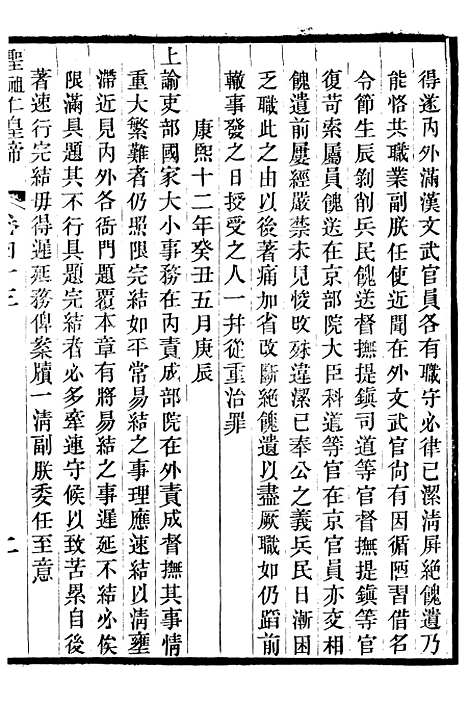 得遂內外滿漢文武官員各有職守必律己潔清屏絕餽遺乃
能恪共職業副朕任使近聞在外文武官尙有因循陋習借名
令節生辰剝削兵民餽送督撫提鎭司道等官督撫提鎭等官
復苛索屬員餽送在京部院大臣科道等官在京官員亦交相
餽遺前屢經嚴禁未見悛改殊違潔己奉公之義兵民日漸困
乏職此之由以後著痛加省改斷絕餽遺以盡厥職如仍蹈前
轍事發之日授受之人一幷從重治罪
康熙十二年癸丑五月庚辰
上諭吏部國家大小事務在內責成部院在外責成督撫其事情
重大繁難者仍照限完結如平常易結之事理應速結以清壅
滯近見內外各衙門題覆本章有將易結之事遲延不結必俟
限滿具題其不行具題完結者必多牽連守候以致苦累自後
著速行完結毋得遲延務俾案牘一清副朕委任至意
聖祖仁皇帝 卷四十三 二